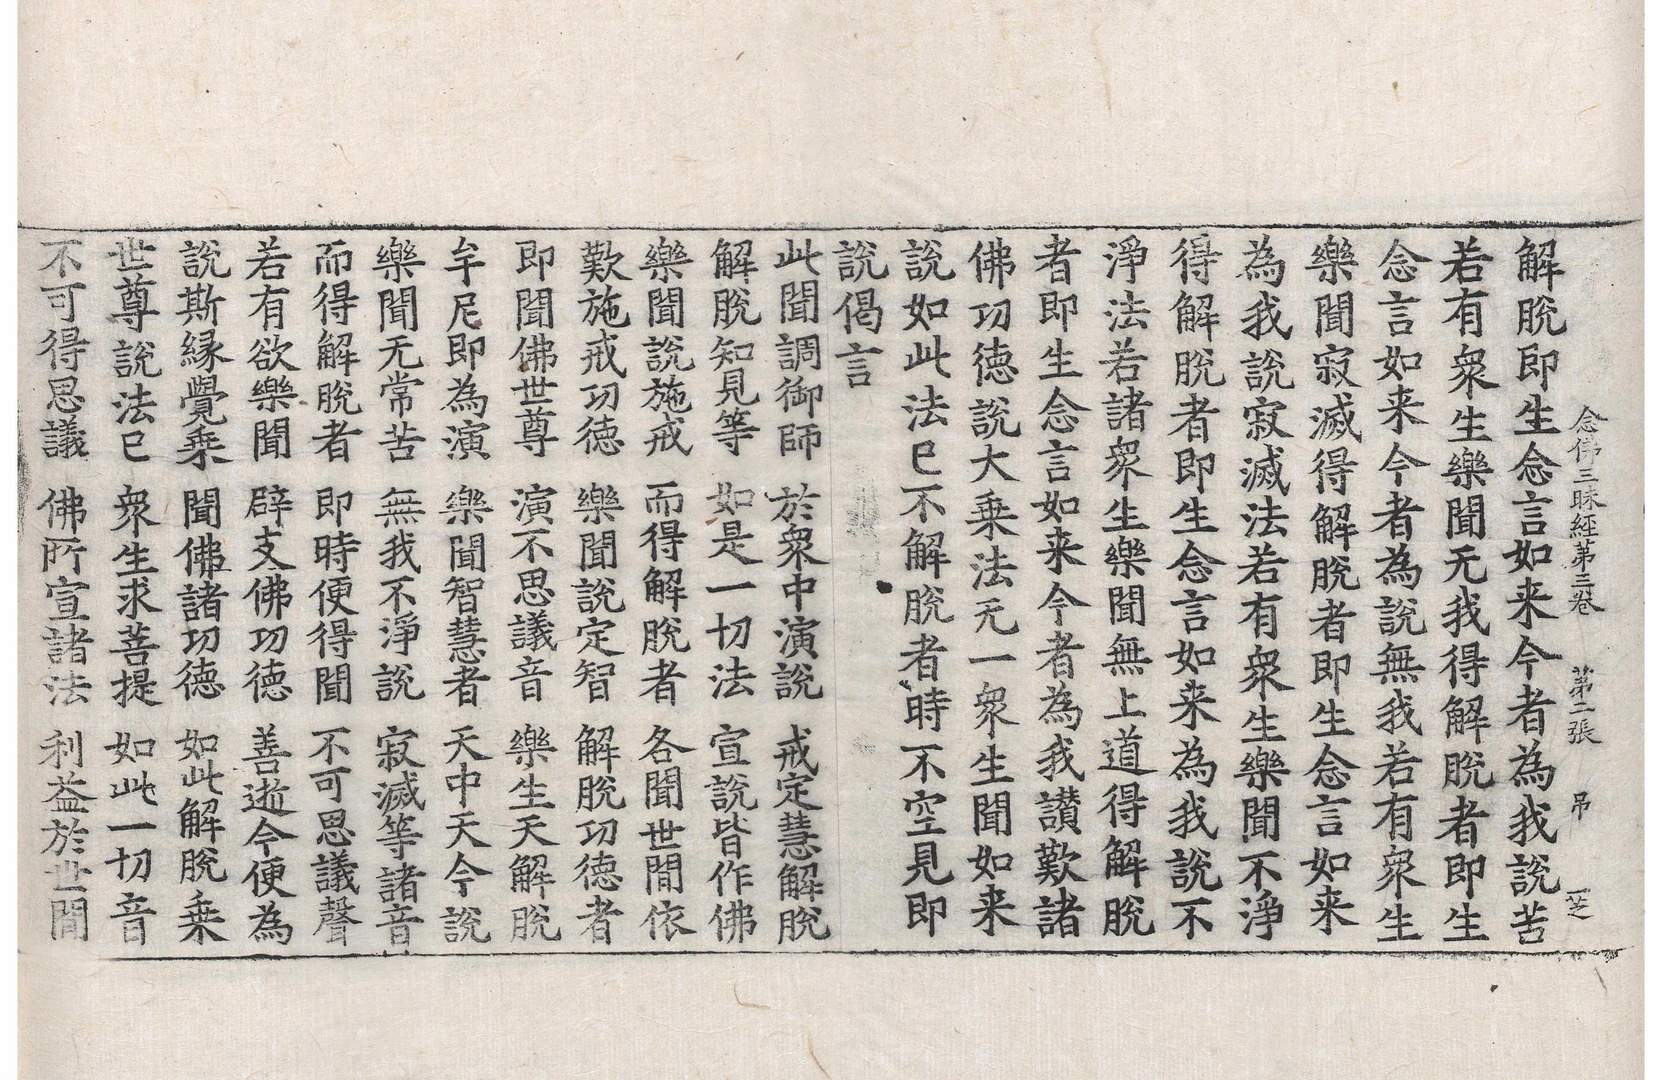 念佛三昧經第三卷 第二張 吊 芝
解脫即生念言如来今者為我說苦
若有衆生樂聞无我得解脫者即生
念言如来今者為說無我若有衆生
樂聞寂滅得解脫者即生念言如来
為我說寂滅法若有衆生樂聞不淨
得解脫者即生念言如来為我說不
淨法若諸衆生樂聞無上道得解脫
者即生念言如来今者為我讃歎諸
佛功德說大乗法无一衆生聞如来
說如此法已不解脫者時不空見即
說偈言
此聞調御師 於衆中演說 戒定慧解脫
解脫知見等 如是一切法 宣說皆作佛
樂聞說施戒 而得解脫者 各聞世閒依
歎施戒功德 樂聞說定智 解脫功德者
即聞佛世尊 演不思議音 樂生天解脫
牟尼即為演 樂聞智慧者 天中天今說
樂聞无常苦 無我不淨說 寂滅等諸音
而得解脫者 即時便得聞 不可思議聲
若有欲樂聞 辟支佛功德 善逝今便為
說斯縁覺乗 聞佛諸功德 如此解脫乗
世尊說法已 衆生求菩提 如此一切音
不可得思議 佛所宣諸法 利益於世閒